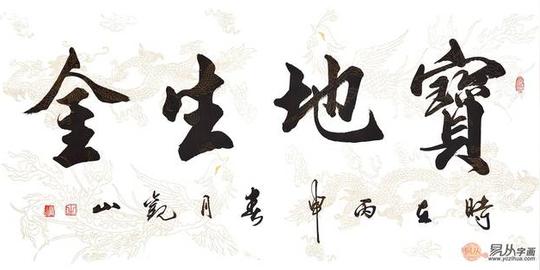 寶地生金
時在丙申春月觀山
易从字画
www.yizihua.com